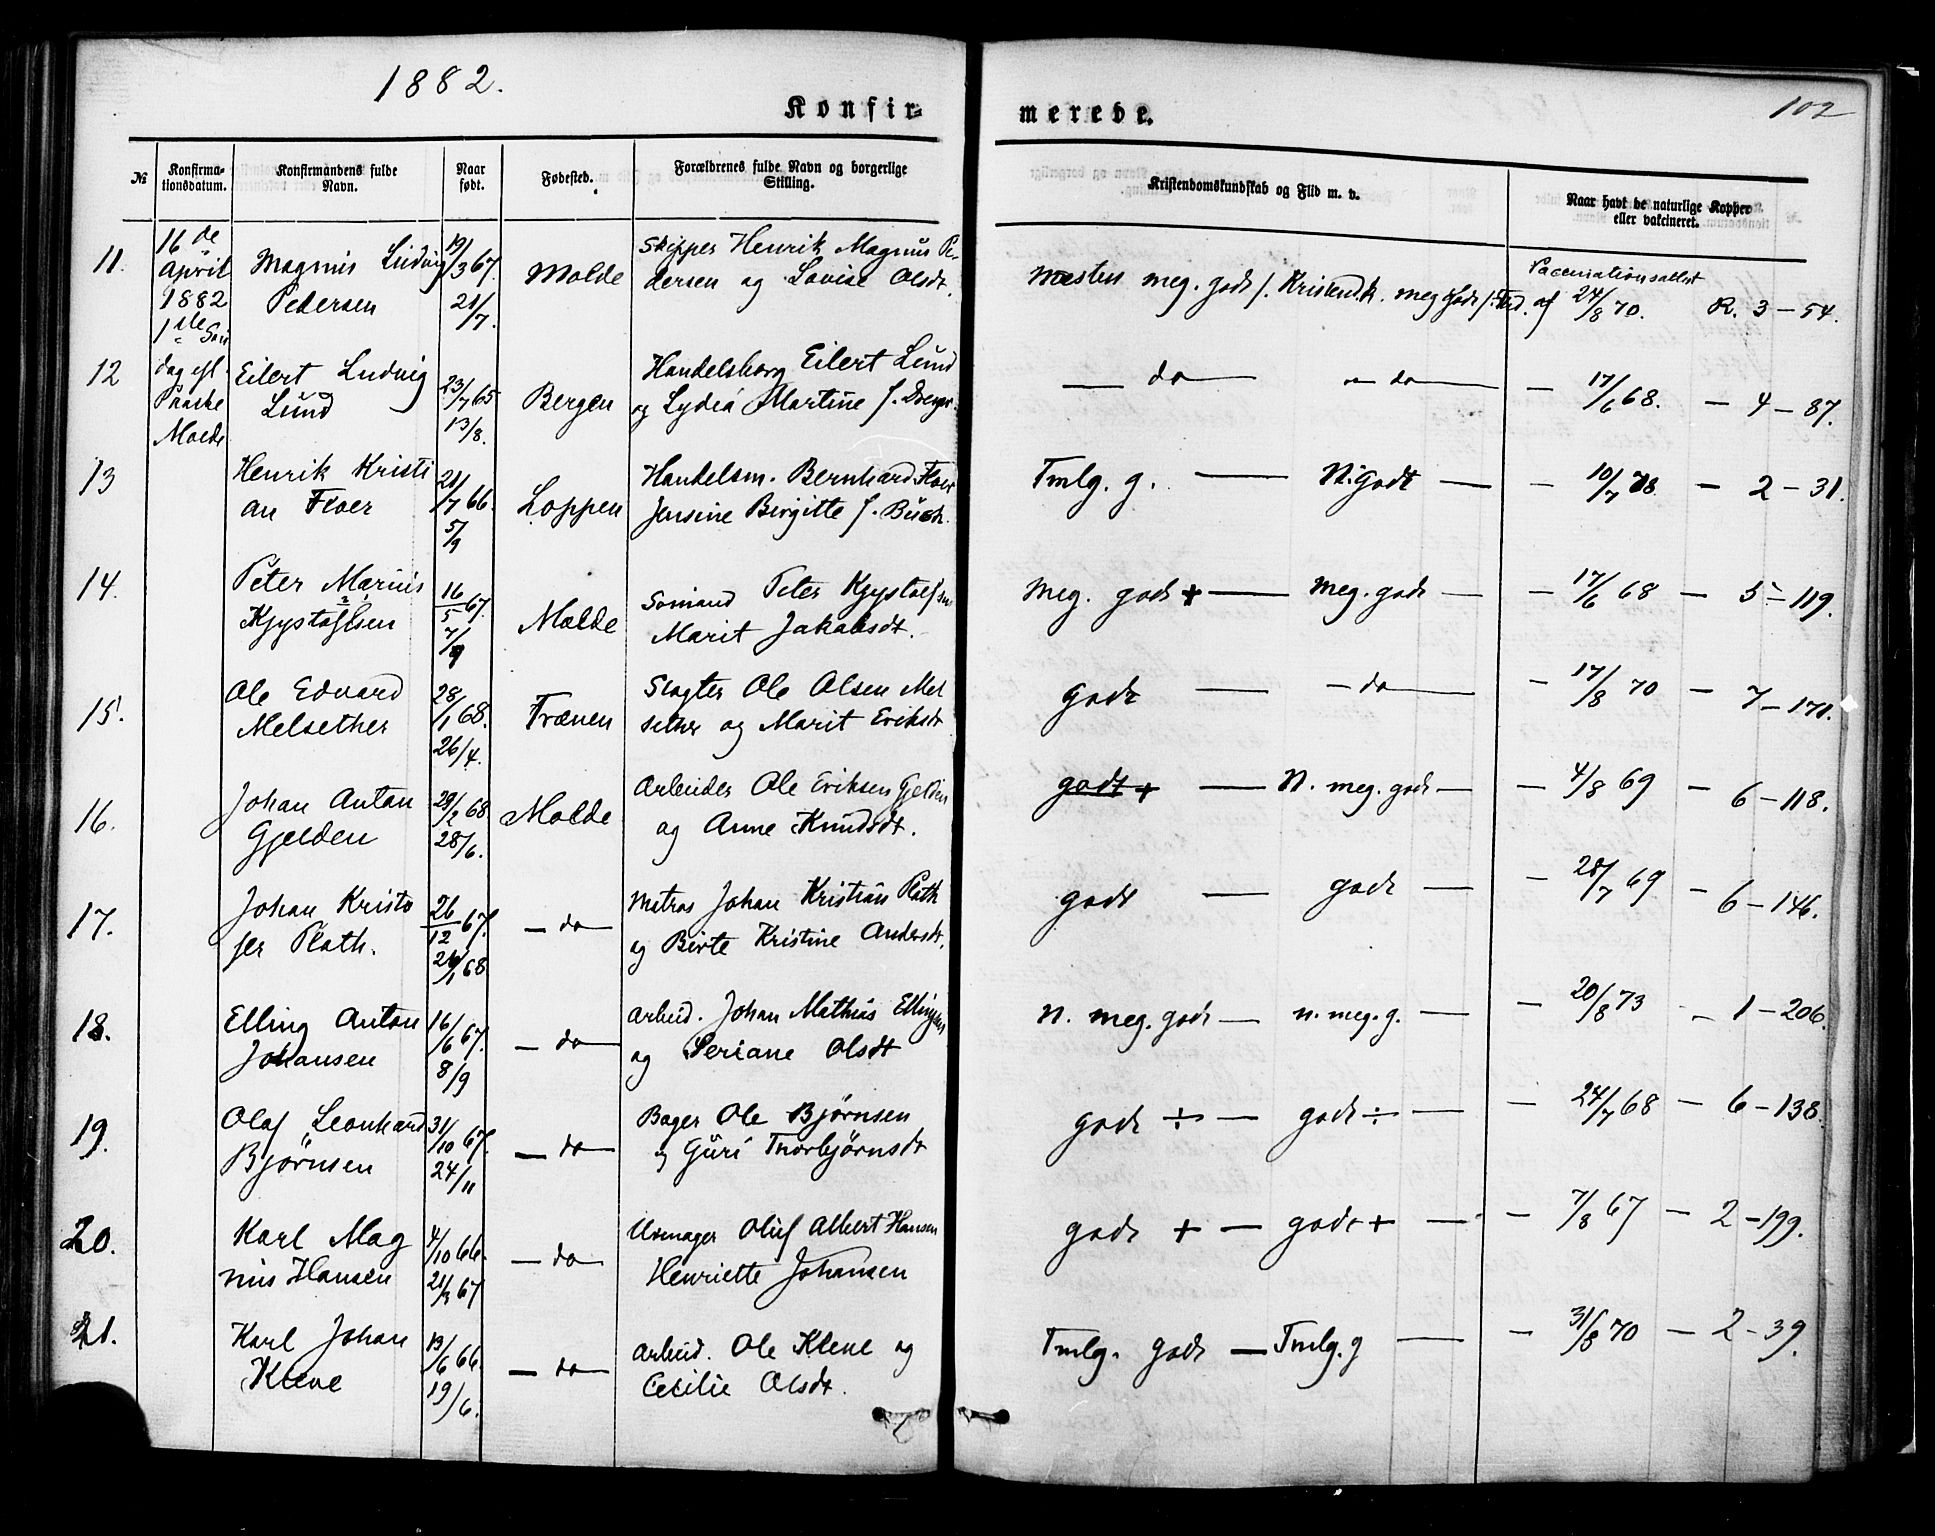 1882.
102
Konfir=
merede.
№
Konfirma-
tionsdatum.
Konfirmandens fulde
Navn.
Naar
født.
Fødested.
Forældrenes fulde Navn og borgerlige
Stilling.
Kristendomskundskab og Flid m. v.
Naar havt de naturlige Kopper
eller vakcineret.
11. 16 de April 1882 1ste Søn Magnus Ludvig Pedersen 19/3 67. 21/7. Molde Skipper Henrik Magnus Pe-
dersen og Lovise Olsdt.
Næsten meg. godt /. Kristend.k. meg Godt /: Vaccinationsattest af 24/8 70. R. 3 – 54.
12 dag eft. Paaske Molde Eilert Ludvig Lund 23/7 65 13/8. Bergen Handelsborg Eilert Lund
og Lydia Martine f.
— do — — do — — 17/6 68. — 4 – 87.
13 Henrik Kristi
an Floer 21/7 66. 5/9 Loppen Handelsm. Bernhard Floer
Jensine Birgitte f. Buch.
Tmlg. g. — N. Godt — — 10/7 — 2 – 31.
14. Peter Marius
16/5 67. 7/9 Molde Sømand Peter
Marit Jakobsdt.
Meg. godt + — meg. godt — — 17/6 68 — 5 – 119.
15. Ole Edvard
Melsether 28/1 68. 26/4. Frænen Slagter Ole Olsen Mel
sether og Marit Eriksdt
godt — — do — — 17/8 70 — 7 – 171.
16. Johan Anton
Gjelden 29/2 68 28/6. Molde Arbeider Ole Eriksen Gjelden
og Anne Knudsdt.
godt + — N. meg. godt — — 4/8 69 — 6 – 118.
17. Johan Kristo
fer Plath. 26/12 67. 68 — do — Matros Johan Kristian Plath
og Birte Kristine Andersdt.
godt — godt — — 28/7 69 — 6 – 146.
18. Elling Anton
Johansen 16/6 67. 8/9 — do — Arbeid. Johan Mathias Ellingsen
og Seriane Olsdt
N. meg. godt — n. meg. g. — — 20/8 73 — 1 – 206.
19. Olaf Leonhard
Bjørnsen 31/10 67. 24/11 — do — Bager Ole Bjørnsen
og Guri Thorbjørnsdt
godt ÷ — godt ÷ — — 24/7 68 — 6 – 138.
20. Karl Mag
nus Hansen 4/10 66. 21/3 67 — do — Urmager Oluf Albert Hansen
Henriette Johansen
godt + — godt + — — 7/8 67 — 2 – 199.
21. Karl Johan
Kleve 13/6 66. 19/6. — do — Arbeid. Ole Kleve og
Cecilie Olsdt.
Tmlg. godt — Tmlg. g — — 31/8 70 — 2 – 39.